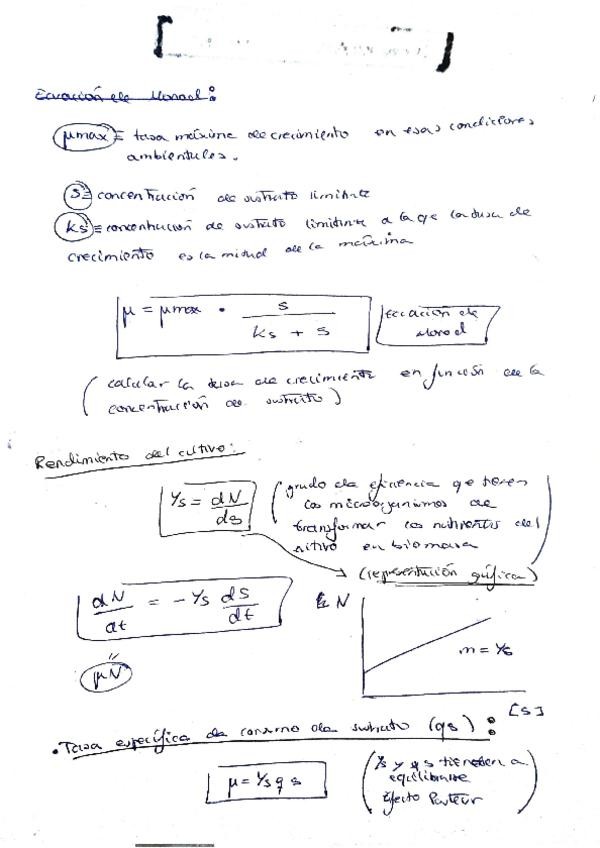 Ecuación de Monod:
μmax ≡ tasa máxima de crecimiento en esas condiciones
ambientales.
S ≡ concentración de sustrato limitante
Ks ≡ concentración de sustrato limitante a la que la tasa de
crecimiento es la mitad de la máxima
μ = μmax · S / (Ks + S)
Ecuación de
Monod
(calcular la tasa de crecimiento en función de la
concentración de sustrato)
Rendimiento del cultivo:
Ys = dN/ds
(grado de eficiencia que tienen
los microorganismos de
transformar los nutrientes del
cultivo en biomasa
(representación gráfica)
dN/dt = -Ys ds/dt
"
μN
N
m = Ys
[S]
• Tasa específica de consumo de sustrato (qs):
μ = Ys qs
(Ys y qs tienden a
equilibrarse
Efecto Pasteur)